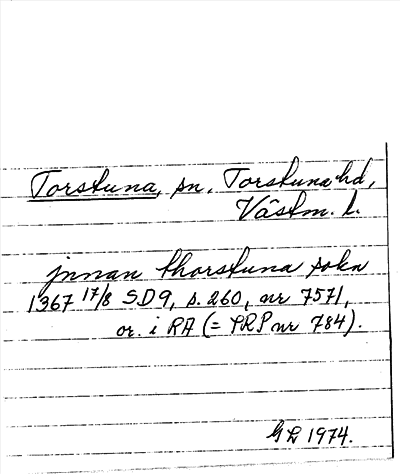 Torstuna, sn, Torstuna hd,
Västm. l.
jnnan thorstuna sokn
1367 17/8 SD9, s. 260, nr 7571,
or. i RA (= PRP nr 784).
GL 1974.